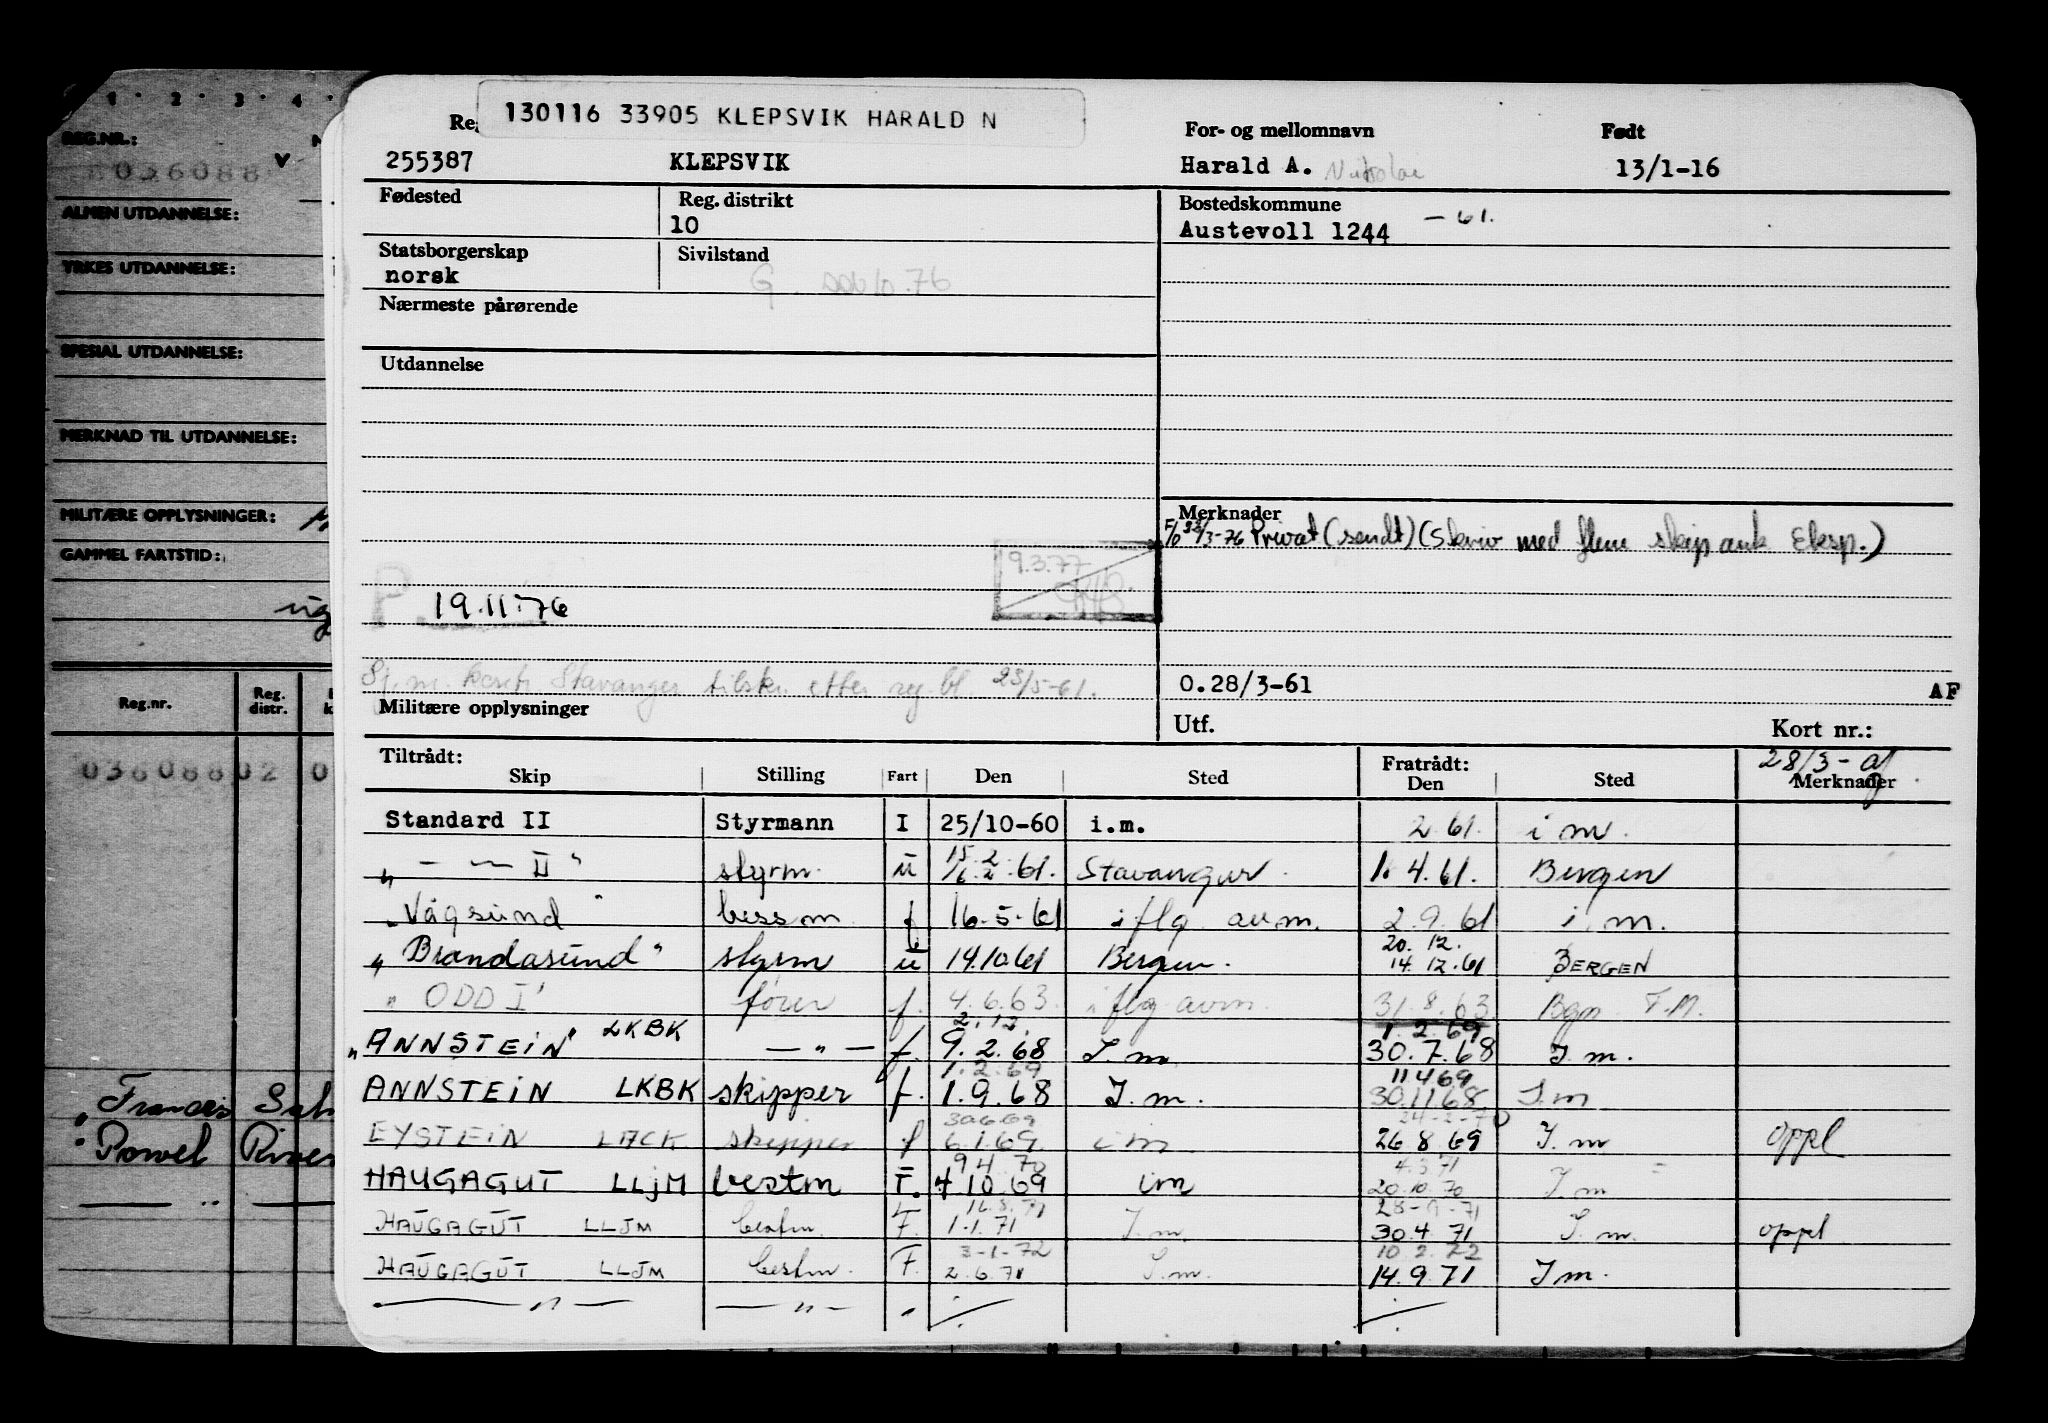 130116 33905 KLEPSVIK HARALD N
Reg
255387
KLEPSVIK
For- og mellomnavn
Harald A.
Født
13/1-16
Fødested
Reg. distrikt
10
Bostedskommune
Austevoll 1244 - 61.
Statsborgerskap
norsk
Sivilstand
G.
Nærmeste pårørende
Utdannelse
Merknader
Privat (sendt) (Skriv med flere skip ank Eksp.)
9.3.77
P. 19.11.76
Stavanger tilskr. etter reg. bl 23/5-61.
O.28/3-61
AF
Militære opplysninger
Utf.
Kort nr.:
28/3-
Tiltrådt:
Skip Stilling Fart Den Sted
Fratrådt:
Den Sted Merknader
Standard II Styrmann I 25/10-60 i.m. 2.61. i m.
" - — II " styrm. u 15.2 16.2.61. Stavanger 1.4.61. Bergen
"Vågsund" bessm. f 16.5.61 iflg avm. 2.9.61 i.m.
"Brandasund" styrm u 14.10.61 Bergen. 20.12. 14.12.61 BERGEN
"ODD I" fører f. 4.6.63. iflg avm. 31.8.63 Bgn F.M.
"ANNSTEIN" LKBK — " — f. 2.12. 9.2.68 I.m 1.2.69 30.7.68 I.m.
ANNSTEIN LKBK skipper f. 1.2.69 1.9.68 I.m. 11.4.69 30.11.68 I.m
EYSTEIN skipper f 30.6.69 6.1.69. i m 26.8.69 I.m oppl
HAUGAGUT LLJM bestm F. 9.4.70 4.10.69 im 4.3.71 20.10.70 I.m
HAUGAGUT LLJM bestm. F. 1.1.71 I.m. 30.4.71 I.m. oppl
HAUGAGUT LLJM bestm. F. 3-1-72 2.6.71 I.m. 10.2.72 14.9.71 I m.
— " — — " —
REG.NR.:
036088
ALMEN UTDANNELSE:
YRKES UTDANNELSE:
SPESIAL UTDANNELSE:
MERKNAD TIL UTDANNELSE:
MILITÆRE OPPLYSNINGER:
GAMMEL FARTSTID:
Reg.nr.
Reg. distr.
03608802 0